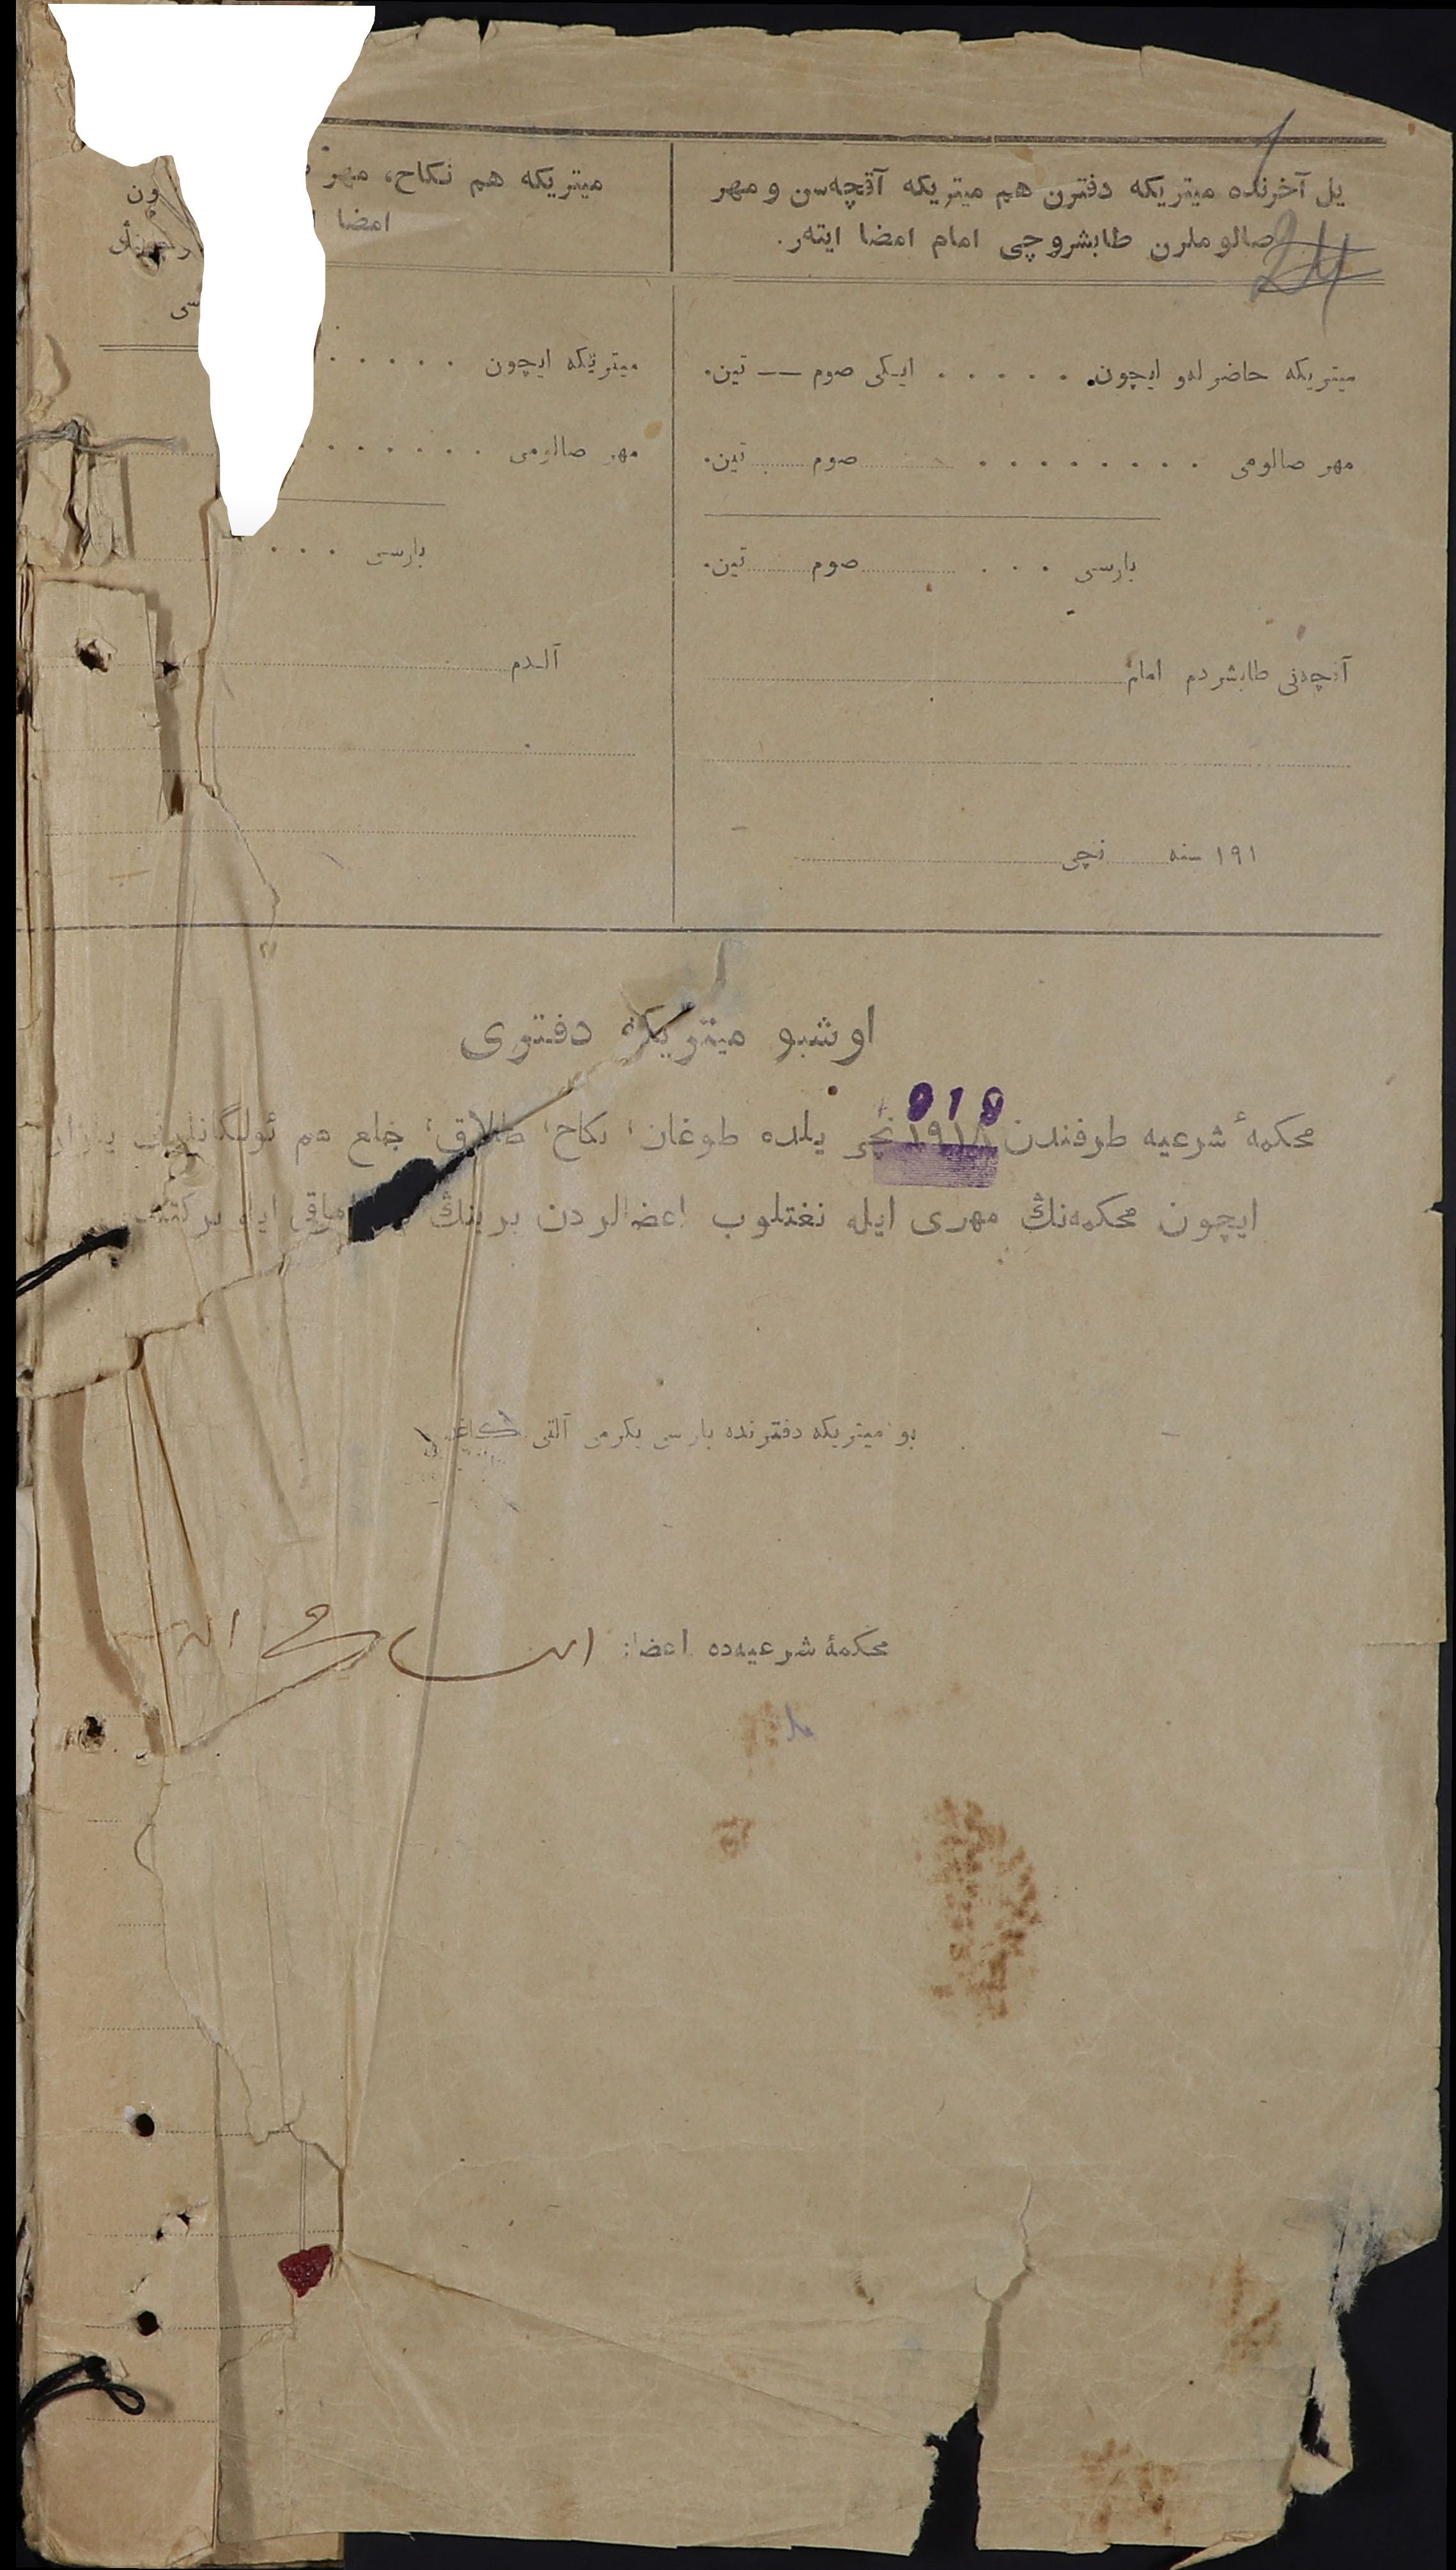 یل آخرنده میتریکه دفترن هم میتریکه آقچه‌سن و مهر
صالوملرن طابشروچی امام امضا ایته‌ر.
میتریکه حاضرلەو ایچون . . . . . . ایکی صوم — تین.
مهر صالومی . . . . . . . . صوم تین.
بارسی . . . صوم تین.
آقچه‌نی طابشردم امام
۱۹۱ سنه نچی
میتریکه هم نکاح، مهر
امضا
میتریکه ایچون . . . . .
مهر صالومی . . . . . . .
بارسی . . .
آلدم
ون
سی
اوشبو میتریکه دفتری
919
محکمهٔ شرعیه طرفندن ۱۹۱۸ نچی یلده طوغان، نکاح، طلاق، خلع هم ئولگانلرنی
ایچون محکمه‌نڭ مهری ایله نغتلوب اعضالردن برینڭ
بو میتریکه دفترنده بارسی یکرمی آلتی کاغد
محکمهٔ شرعیه‌ده اعضا: